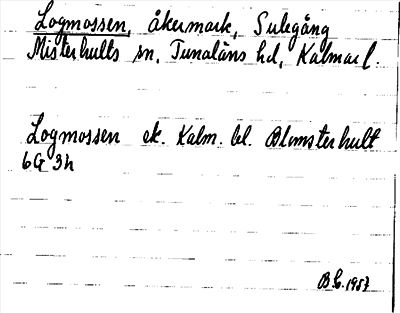 Logmossen, åkermark, Sulegång
Misterhults sn, Tunaläns hd, Kalmar l.
Logmossen ek. Kalm. bl. Blomsterhult
6G 3h
1957